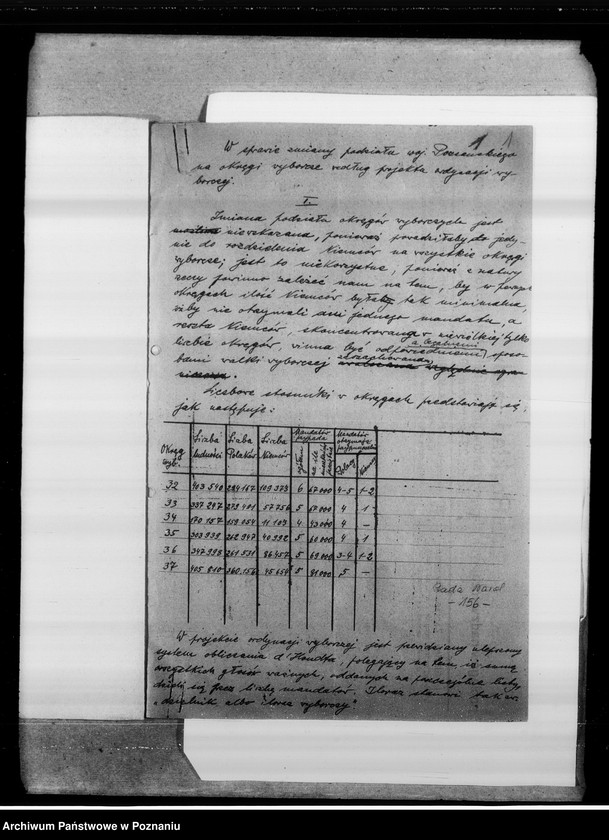 1
W sprawie zmiany podziału woj. Poznańskiego
na okręgi wyborcze według projektu ordynacji wy-
borczej.
I.
Zmiana podziału okręgów wyborczych jest
niewskazana, ponieważ prowadziłaby do jedy-
nie do rozdzielenia Niemców na wszystkie okręgi
wyborcze; jest to niekorzystne, ponieważ z natury
rzeczy powinno zależeć nam na tem, by w
okręgach ilość Niemców była tak minimalna,
iżby nie otrzymali ani jednego mandatu, a
reszta Niemców, skoncentrowana w niewielkiej tylko
liczbie okręgów, winna być odpowiedniemi a legalnemi sposo-
bami walki wyborczej
Liczbowe stosunki w okręgach przedstawiają się,
jak następuje:
Okręg wyb. Liczba ludności Liczba Polaków Liczba Niemców Mandatów przypada ogółem na ile Mandatów Polacy Niemcy
32 403 540 284 167 109 373 6 67 000 4-5 1-2
33 337 247 273 401 57 756 5 67 000 4 1
34 170 157 159 054 11 103 4 43 000 4 -
35 303 939 262 947 40 992 5 60 000 4 1
36 347 998 261 531 86 457 5 69 000 3-4 1-2
37 405 810 360 156 45 654 5 81 000 5 -
Rada Narod
- 156 -
W projekcie ordynacji wyborczej jest przewidziany ulepszony
system obliczania d'Hondta, polegający na tem, iż sumę
wszystkich głosów ważnych, oddanych na poszczególne listy,
dzieli się przez liczbę mandatów. Iloraz stanowi tak zw.
"dzielnik albo iloraz wyborczy"
Archiwum Państwowe w Poznaniu